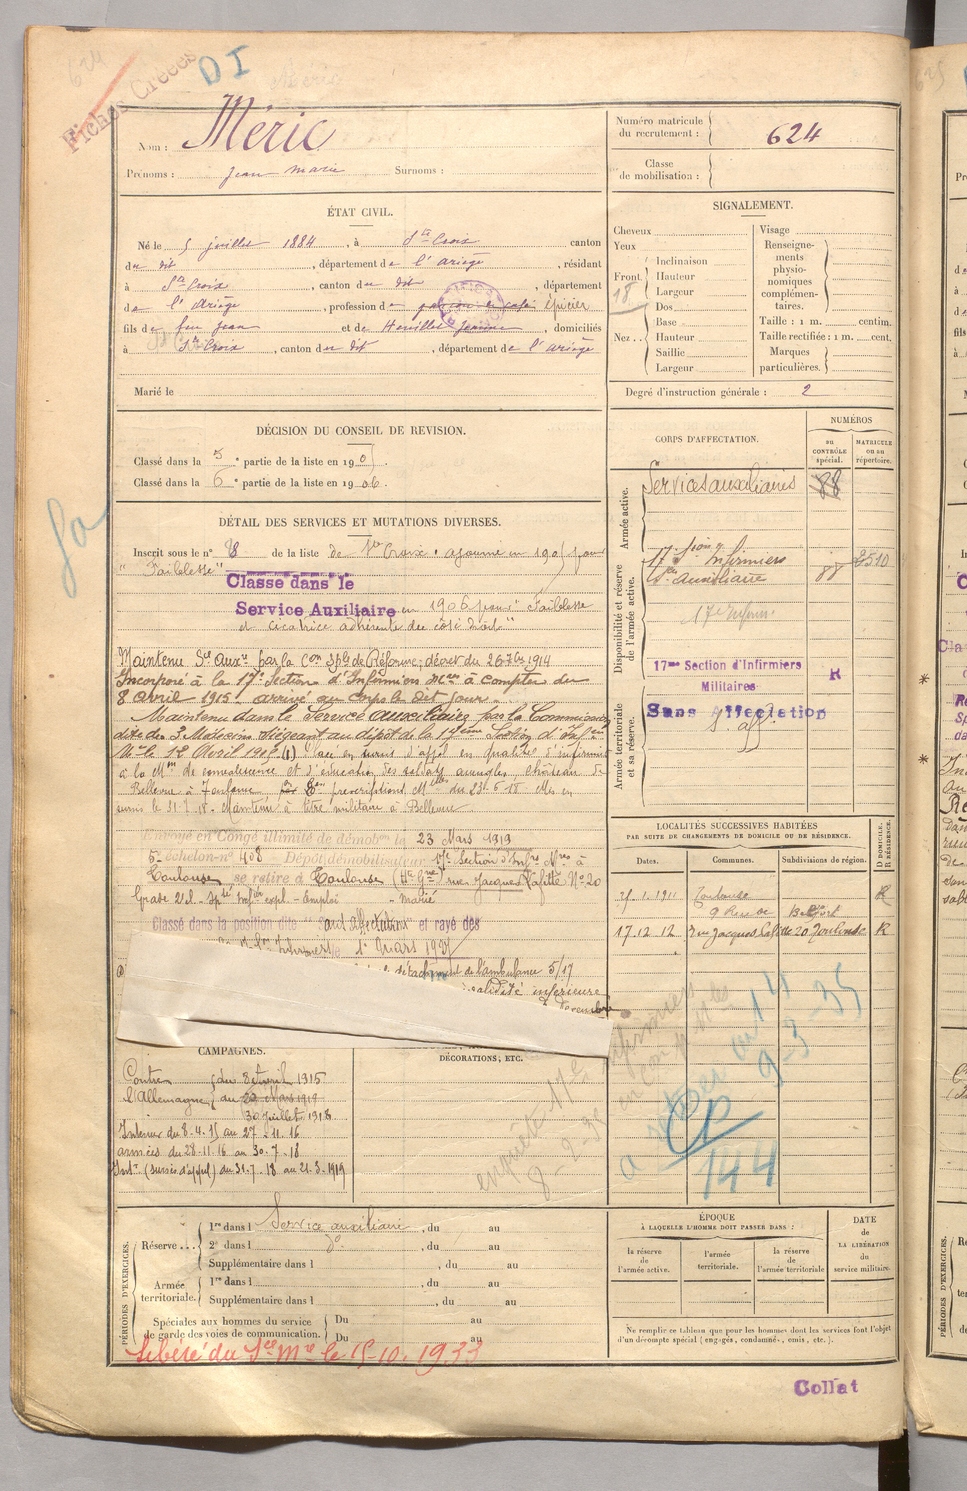 624
Fiches Créées
DI
Nom : Méric
Prénoms : Jean Marie Surnoms :
Numéro matricule du recrutement : 624
Classe de mobilisation :
ÉTAT CIVIL.
Né le 5 juillet 1884, à Ste Croix canton
du dit, département de l'ariège, résidant
à Ste Croix, canton du dit, département
de l'ariège, profession de garçon de café épicier
fils de feu Jean et de Jeanne, domiciliés
à Ste Croix, canton du dit, département de l'ariège
Marié le
SIGNALEMENT.
Cheveux
Yeux
Front
Inclinaison
Hauteur
Largeur
Nez
Dos
Base
Hauteur
Saillie
Largeur
Visage
Renseignements physionomiques complémentaires.
Taille : 1 m. centim.
Taille rectifiée : 1 m. cent.
Marques particulières.
Degré d'instruction générale : 2
DÉCISION DU CONSEIL DE REVISION.
Classé dans la 5e partie de la liste en 1905.
Classé dans la 6e partie de la liste en 1906.
DÉTAIL DES SERVICES ET MUTATIONS DIVERSES.
Inscrit sous le n° 8 de la liste de Ste Croix. ajourné en 1905 pour
"Faiblesse"
Classé dans le
Service Auxiliaire en 1906 pour "Faiblesse
et cicatrice adhérente du côté droit"
Maintenu Sce Auxre par la Con Sple de Réforme; décret du 26 7bre 1914
Incorporé à la 17e Section d'Infirmiers Mres à compter du
8 avril 1915. arrivé au corps le dit jour.
Maintenu dans le Service auxiliaire par la Commission
dite des 3 Médecins siégeant au dépôt de la 17ème Section d'Infers
(1) Placé en sursis d'appel en qualité d'infirmier
à la Mon de convalescence et d'éducation des soldats aveugles, château de
Bellevue à prescriptions Mlles du 23-6-18 Mis en
sursis le 31-7-18. Maintenu à titre militaire à Bellevue
Envoyé en Congé illimité de démobon le 23 Mars 1919
5e échelon n° 408 Dépôt démobilisateur 17e Section d'Infrs Mres à
Toulouse se retire à Toulouse (Hte Gne) rue Jacques Lafitte N° 20
Classé dans la position dite "Sans affectation" et rayé des
1er Mars 1927
détachement de l'ambulance 5/17
invalidité inférieure
CORPS D'AFFECTATION.
NUMÉROS
au CONTRÔLE spécial.
MATRICULE ou au répertoire.
Armée active.
Services auxiliaires 88
Disponibilité et réserve de l'armée active.
17e Son Infirmiers 2510
Sces Auxiliaire 88
17me Section d'Infirmiers R
Militaires
Armée territoriale et sa réserve.
Sans Affectation
S. aff.
LOCALITÉS SUCCESSIVES HABITÉES
PAR SUITE DE CHANGEMENTS DE DOMICILE OU DE RÉSIDENCE.
Dates. Communes. Subdivisions de région. D DOMICILE. R RÉSIDENCE.
25.1.1911 Toulouse R
9 Rue de Belfort
17.12.12 Rue Jacques Lafitte 20 Toulouse R
CAMPAGNES.
Contre du 8 avril 1915
l'Allemagne au 22 Mars 1919
30 juillet 1918
Intérieur du 8.4.15 au 27-11-16
armées du 28-11-16 au 30-7-18
Intr (sursis d'appel) du 31-7-18 au 21-3-1919
DÉCORATIONS, ETC.
enquête Mle
8 2-35
9-3-35
CP
144
PÉRIODES D'EXERCICES.
Réserve
1re dans l Service auxiliaire, du au
2e dans l d°, du au
Supplémentaire dans l , du au
Armée territoriale.
1re dans l , du au
Supplémentaire dans l , du au
Spéciales aux hommes du service de garde des voies de communication.
Du au
Du au
ÉPOQUE
À LAQUELLE L'HOMME DOIT PASSER DANS :
la réserve de l'armée active.
l'armée territoriale.
la réserve de l'armée territoriale
DATE DE LA LIBÉRATION du service militaire.
Ne remplir ce tableau que pour les hommes dont les services font l'objet
d'un décompte spécial (engagés, condamnés, omis, etc.).
Libéré du Sce Mre le 15-10-1933
Collat